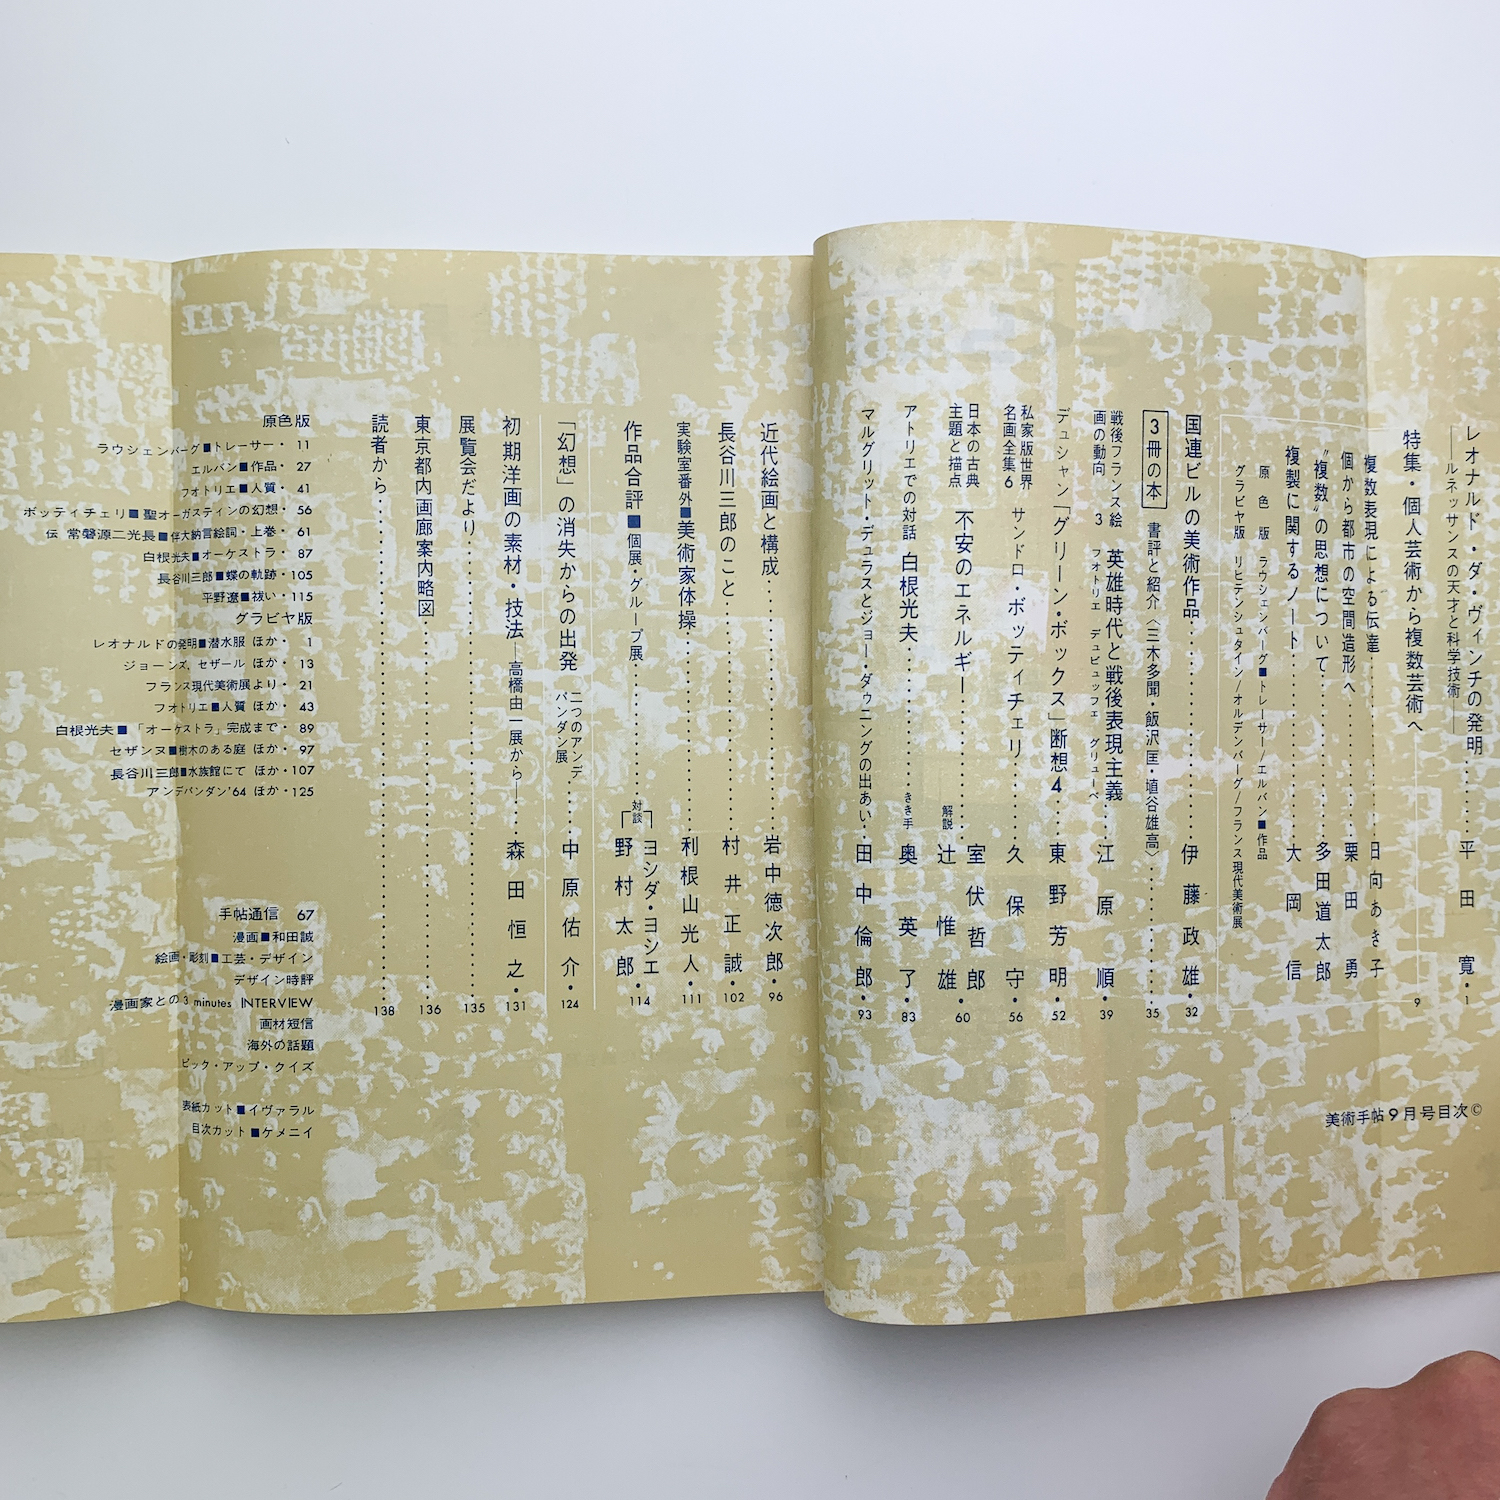 レオナルド・ダ・ヴィンチの発明……平田寛・1
──ルネッサンスの天才と科学技術──
特集・個人芸術から複数芸術へ……9
複数表現による伝達……日向あき子
個から都市の空間造形へ……栗田勇
〝複数〟の思想について……多田道太郎
複製に関するノート……大岡信
原色版 ラウシェンバーグ■トレーサー/エルバン■作品
グラビヤ版 リヒテンシュタイン/オルデンバーグ/フランス現代美術展
国連ビルの美術作品……伊藤政雄・32
3冊の本 書評と紹介〈三木多聞・飯沢匡・埴谷雄高〉……35
戦後フランス絵画の動向 3 英雄時代と戦後表現主義……江原順・39
フォトリエ デュビュッフェ グリューベ
デュシャン「グリーン・ボックス」断想4……東野芳明・52
私家版世界名画全集6 サンドロ・ボッティチェリ……久保守・56
日本の古典 主題と描点 不安のエネルギー……室伏哲郎・60
解説 辻惟雄
アトリエでの対話 白根光夫……きき手 奥英了・83
マルグリット・デュラスとジョー・ダウニングの出あい・田中倫郎・93
近代絵画と構成……岩中徳次郎・96
長谷川三郎のこと……村井正誠・102
実験室番外■美術家体操……利根山光人・111
作品合評■個展・グループ展……対談 ヨシダ・ヨシエ 野村太郎・114
「幻想」の消失からの出発 二つのアンデパンダン展……中原佑介・124
初期洋画の素材・技法──高橋由一展から──……森田恒之・131
展覧会だより……135
東京都内画廊案内略図……136
読者から……138
原色版
ラウシェンバーグ■トレーサー・11
エルバン■作品・27
フォトリエ■人質・41
ボッティチェリ■聖オーガスティンの幻想・56
伝 常磐源二光長■伴大納言絵詞・上巻・61
白根光夫■オーケストラ・87
長谷川三郎■蝶の軌跡・105
平野遼■祓い・115
グラビヤ版
レオナルドの発明■潜水服 ほか・1
ジョーンズ, セザール ほか・13
フランス現代美術展より・21
フォトリエ■人質 ほか・43
白根光夫■「オーケストラ」完成まで・89
セザンヌ■樹木のある庭 ほか・97
長谷川三郎■水族館にて ほか・107
アンデパンダン'64 ほか・125
手帖通信 67
漫画■和田誠
絵画・彫刻■工芸・デザイン
デザイン時評
漫画家との3 minutes INTERVIEW
画材短信
海外の話題
ピック・アップ・クイズ
表紙カット■イヴァラル
目次カット■ケメニイ
美術手帖9月号目次©